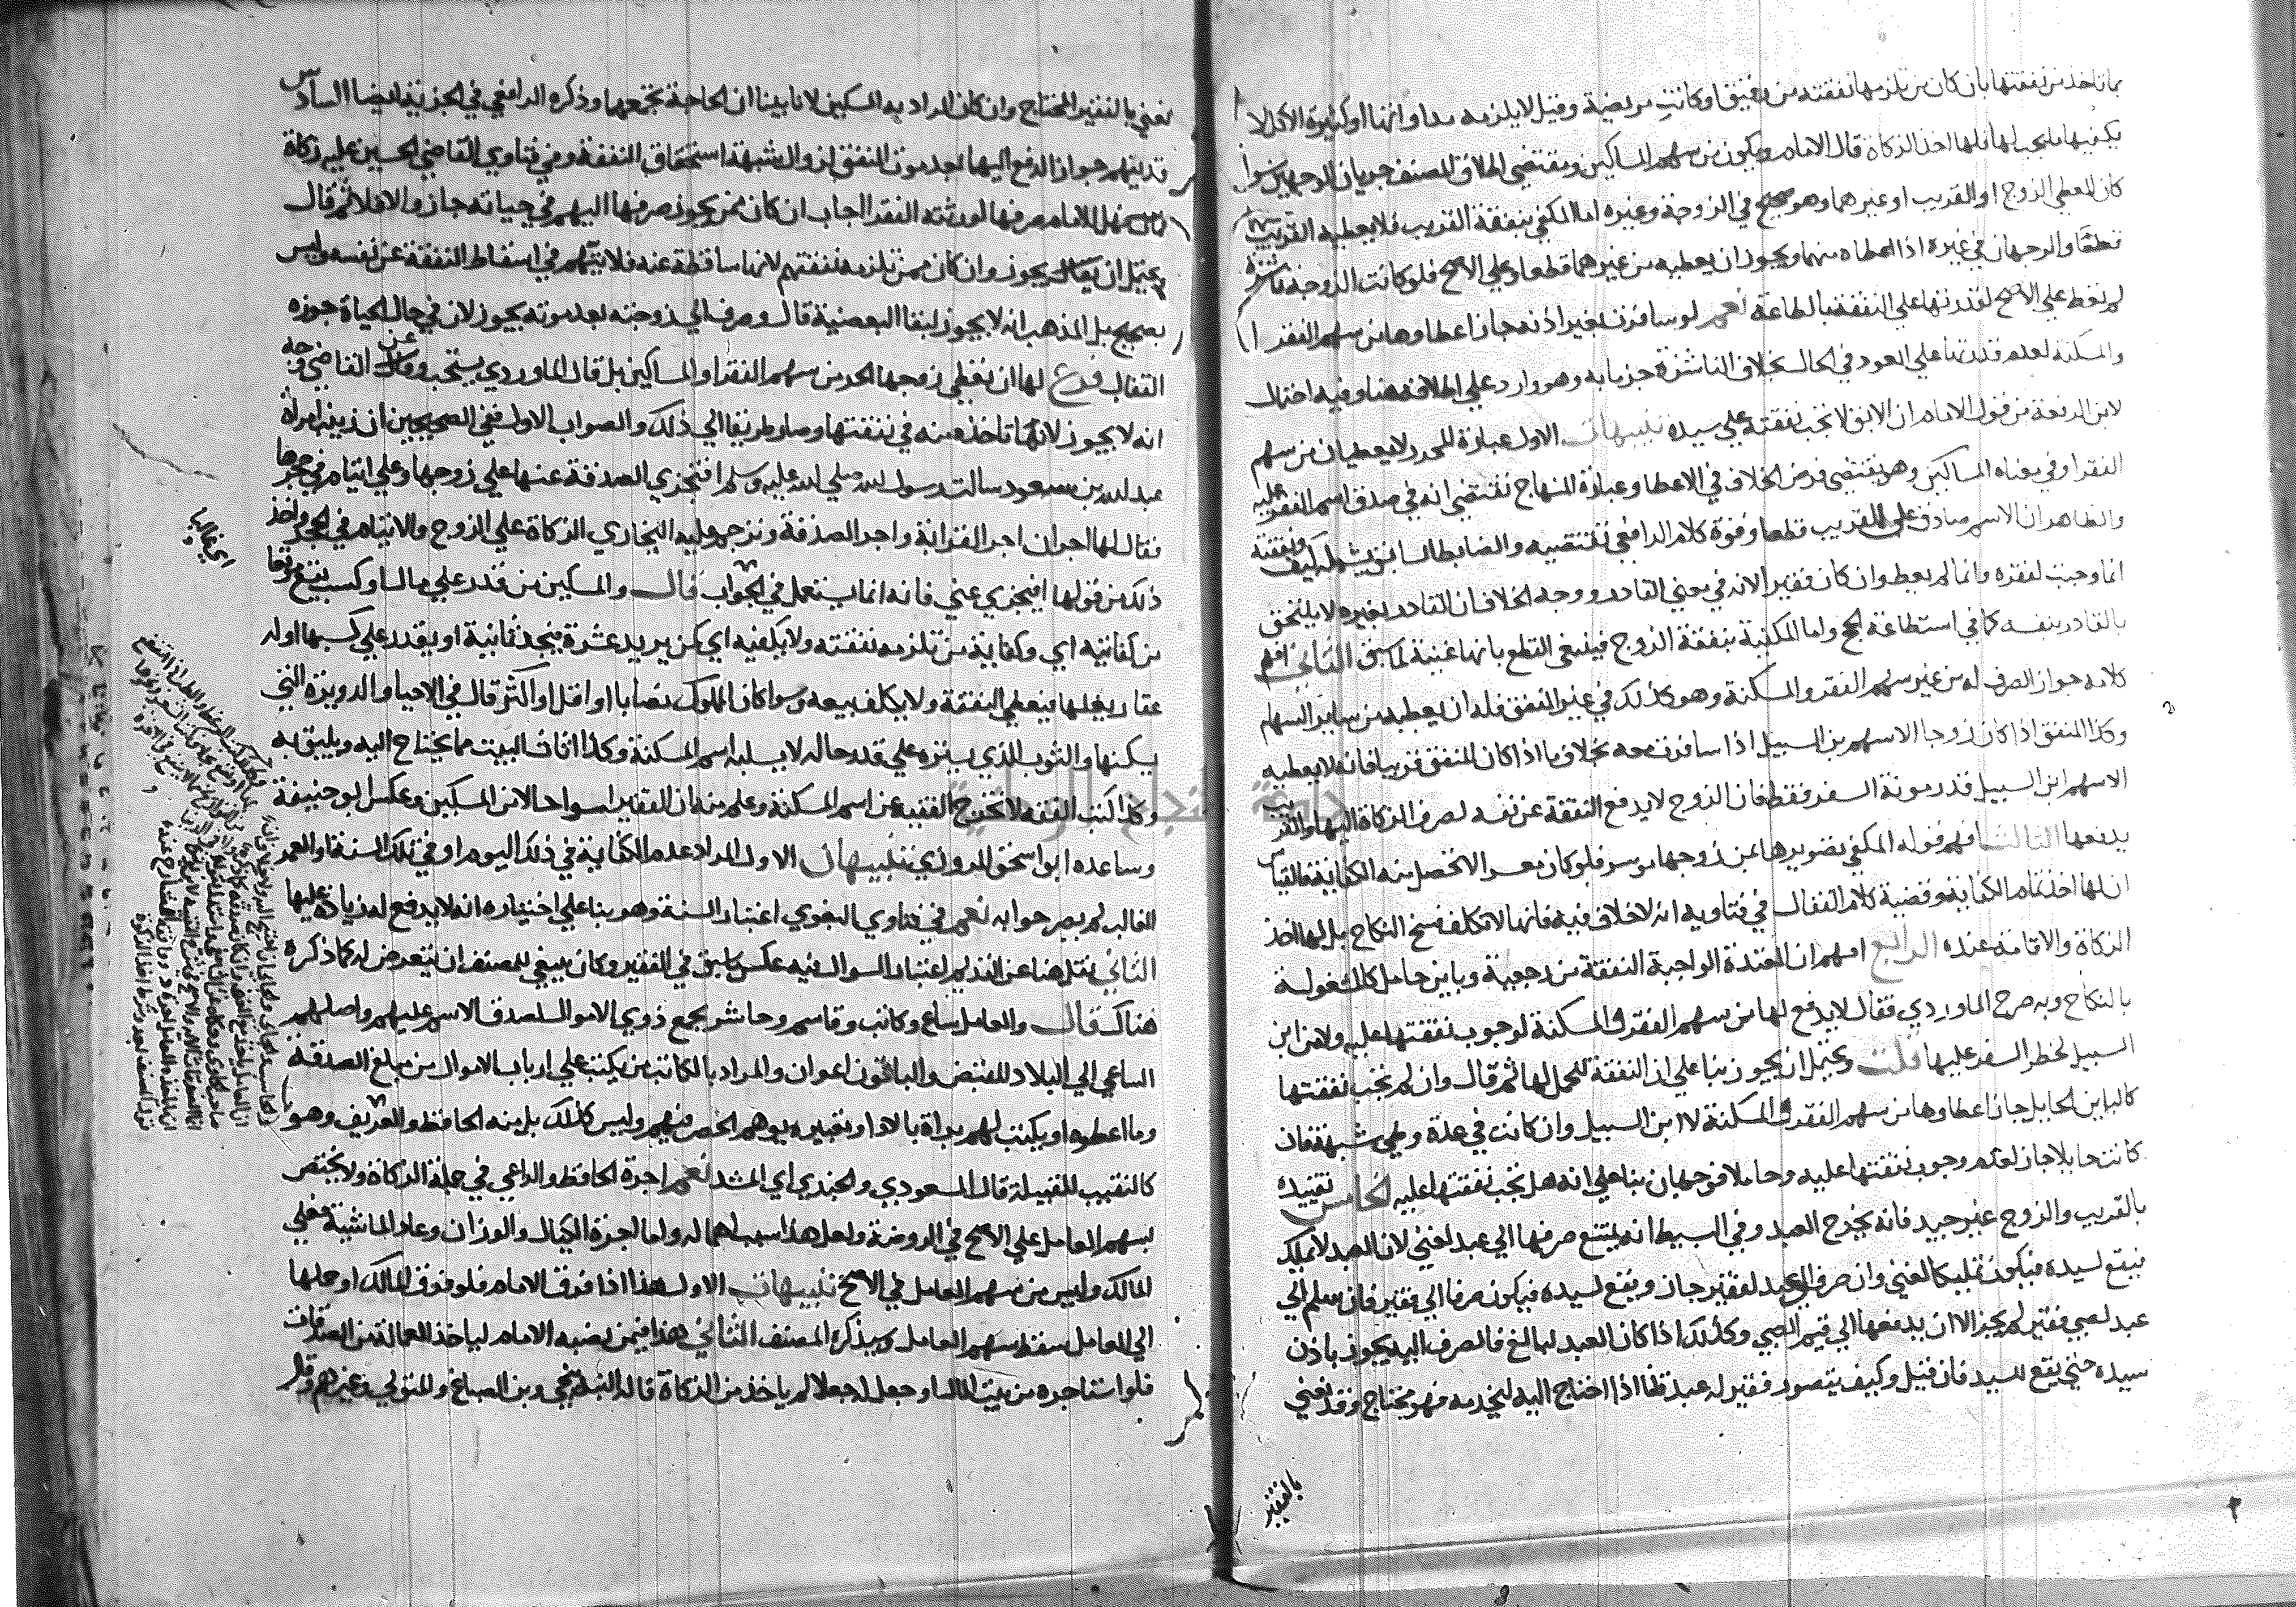 بما تاخذ من نفقتها بان كان من تلزمها نفقته من رقيق او كانت مريضة وقيل لا يلزمه مداواتها او كثيرة الاكل لا
يكفيها ما يجب لها فلها اخذ الزكاة قال الامام ويكون من سهم المساكين ومقتضى اطلاق المصنف جريان الوجهين سوا
كان المعطي الزوج او القريب او غيرهما وهو صحيح في الزوجة وغيره اما المكفي بنفقة القريب فلا يعطيه القريب
قطعًا والوجهان في غيره اذا اعطاه منهما ويجوز ان يعطيه من غيرهما قطعا وعلى الاصح فلو كانت الزوجة ناشزة
لم تعط علي الاصح لقدرتها على النفقة بالطاعة نعم لو سافرت بغير اذنه جاز اعطاوها من سهم الفقرا
والمسكنة لعدم قدرتها علي العود في الحال بخلاف الناشزة جزما به وهو وارد علي اطلاقه هنا وفيه احتمال
لابن الرفعة من قول الامام ان الابق لا تجب نفقته علي سيده تنبيهات الاول عبارة المحرر لا يعطيان من سهم
الفقرا وفي معناه المساكين وهو يقتضي فرض الخلاف في الاعطا وعبارة المنهاج تقتضي انه في صدق اسم الفقر عليه
والظاهر ان الاسم صادق على القريب قطعا وقوة كلام الرافعي تقتضيه والضابط السابق يشمله كيف ونفقته
انما وجبت لفقره وانما لم يعط وان كان فقيرا لانه في معني القادر ووجه الخلاف ان القادر بغيره لا يلتحق
بالقادر بنفسه كما في استطاعة الحج واما المكفية بنفقة الزوج فينبغي القطع بانها غنية لما سبق الثاني افهم
كلامه جواز الصرف له من غير سهم الفقر والمسكنة وهو كذلك في غير المنفق فله ان يعطيه من ساير السهام
وكذا المنفق اذا كان زوجا الا سهم بن السبيل اذا سافرت معه بخلاف ما اذا كان المنفق قريبا فانه لا يعطيه
الا سهم ابن السبيل قدر مونة السفر فقط فان الزوج لا يدفع النفقة عن نفسه لصرف الزكاة اليها والقريب
يدفعها الثالث افهم قوله المكفي تصويرها بمن زوجها موسر فلو كان معسرا لا تحصل منه الكفاية فالقياس
ان لها اخذ تمام الكفاية وقضية كلام القفال في فتاويه انه لا خلاف فيه فانها لا تكلف فسخ النكاح بل لها اخذ
الزكاة والاقامة عنده الرابع افهم ان المعتدة الواجبة النفقة من رجعية وباين حامل كالمشغولة
بالنكاح وبه صرح الماوردي فقال لا يدفع لها من سهم الفقر والمسكنة لوجوب نفقتها عليه ولا من ابن
السبيل لحظر السفر عليها قلت ويحتمل ان يجوز بنا علي ان النفقة للحمل لها ثم قال وان لم تجب نفقتها
كالباين الحايل جاز اعطاوها من سهم الفقر والمسكنة لا ابن السبيل وان كانت في عدة وطي شبهة فان
كانت حايلا جاز لعدم وجوب نفقتها عليه وحاملا فوجهان بنا علي انه هل تجب نفقتها عليه الخامس تقييده
بالقريب والزوج غير جيد فانه يخرج العبد وفي البسيط انه يمتنع صرفها الي عبد لغني لان العبد لا يملك
فيقع لسيده فيكون تمليكا لغني وان صرف الى عبد لفقير جاز ويقع لسيده فيكون صرفا الي فقير فان سلم الي
عبد لصبي فقير لم يجز الا ان يدفعها الي قيم الصبي وكذلك اذا كان العبد لبالغ فالصرف اليه يجوز باذن
سيده حتي يقع للسيد فان قيل وكيف يتصور فقير له عبد قلنا اذا احتاج اليه ليخدمه فهو محتاج وقد نعني
بالفقير
نعني بالفقير المحتاج وان كان المراد به المسكين لانا بينا ان الحاجة تجمعهما وذكره الرافعي في الجزية ايضا السادس
قد يفهم جواز الدفع اليها بعد موت المنفق لزوال شبهة استحقاق النفقة وفي فتاوي القاضي الحسين عليه زكاة
فمات هل للامام صرفها لورثته الفقرا اجاب ان كان ممن يجوز صرفها اليهم في حياته جاز والا فلا ثم قال
ويحتمل ان يقال يجوز وان كان ممن تلزمه نفقتهم لانها ساقطة عنه فلا يتهم في اسقاط النفقة عن نفسه وليس
بصحيح بل المذهب انه لا يجوز لبقا البعضية قال وصرف الي زوجته بعد موته يجوز لان في حال الحياة جوزه
القفال فرع لها ان تعطي زوجها الحر من سهم الفقرا والمساكين بل قال الماوردي يستحب وعن القاضي وجه
انه لا يجوز لانها تاخذ منه في نفقتها وصار طريقا الي ذلك والصواب الاول ففي الصحيحين ان زينب امراة
عبد الله بن مسعود سالت رسول الله صلي الله عليه وسلم افتجزي الصدقة عنها علي زوجها وعلي ايتام في حجرها
فقال لها اجران اجر القرابة واجر الصدقة وترجم عليه البخاري الزكاة علي الزوج والايتام في الحجر واخذ
ذلك من قولها افيجزي عني فانه انما يستعمل في الواجب قال والمسكين من قدر علي مال او كسب يقع موقعا
من كفايته اي وكفاية من تلزمه نفقته ولا يكفيه اي كمن يريد عشرة فيجد ثمانية او يقدر علي كسبها او له
عقار يغلها فيعطي النفقة ولا يكلف بيعه وسوا كان المملوك نصابا او اقل او اكثر قال في الاحيا والدويرة التي
يسكنها والثوب الذي يستره علي قدر حاله لا يسلبه اسم المسكنة وكذا اثاث البيت مما يحتاج اليه ويليق به
وكذا كتب الفقه لا تخرج الفقيه عن اسم المسكنة وعلم منه ان الفقير اسوا حالا من المسكين وعكس ابو حنيفة
وساعده ابو اسحق المروزي تنبيهان الاول المراد عدم الكفاية في ذلك اليوم او في تلك السنة او العمر
الغالب لم يصرحوا به نعم في فتاوي البغوي اعتبار السنة وهو بنا علي اختياره انه لا يدفع له زيادة عليها
الثاني نقل هنا عن القديم اعتبار السوال فيه عكس ما سبق في الفقير وكان ينبغي للمصنف ان يتعرض له كما ذكره
هناك قال والعامل ساع وكاتب وقاسم وحاشر يجمع ذوي الاموال لصدق الاسم عليهم واصلهم
الساعي الي البلاد للقبض والباقون اعوان والمراد بالكاتب من يكتب علي ارباب الاموال من مبلغ الصدقة
وما اعطوه او يكتب لهم براة بالاداء وتعبيره يوهم الحصر فيهم وليس كذلك بل منه الحافظ والعريف وهو
كالنقيب للقبيلة قال المسعودي والجندي اي المشد نعم اجرة الحافظ والراعي في جملة الزكاة ولا يختص
بسهم العامل علي الاصح في الروضة ولعل هذا سبب اهماله واما اجرة الكيال والوزان وعاد الماشية فعلي
المالك وليس من سهم العامل في الاصح تنبيهات الاول هذا اذا فرق الامام فلو فرق المالك او حملها
الي العامل سقط سهم العامل وسيذكره المصنف الثاني هذا فيمن نصبه الامام لياخذ العمالة من الصدقات
فلو استاجره من بيت المال او جعل له جعلا لم ياخذ من الزكاة قاله البندنيجي وبن الصباغ والمتولي وغيرهم وقل
اي غالبا